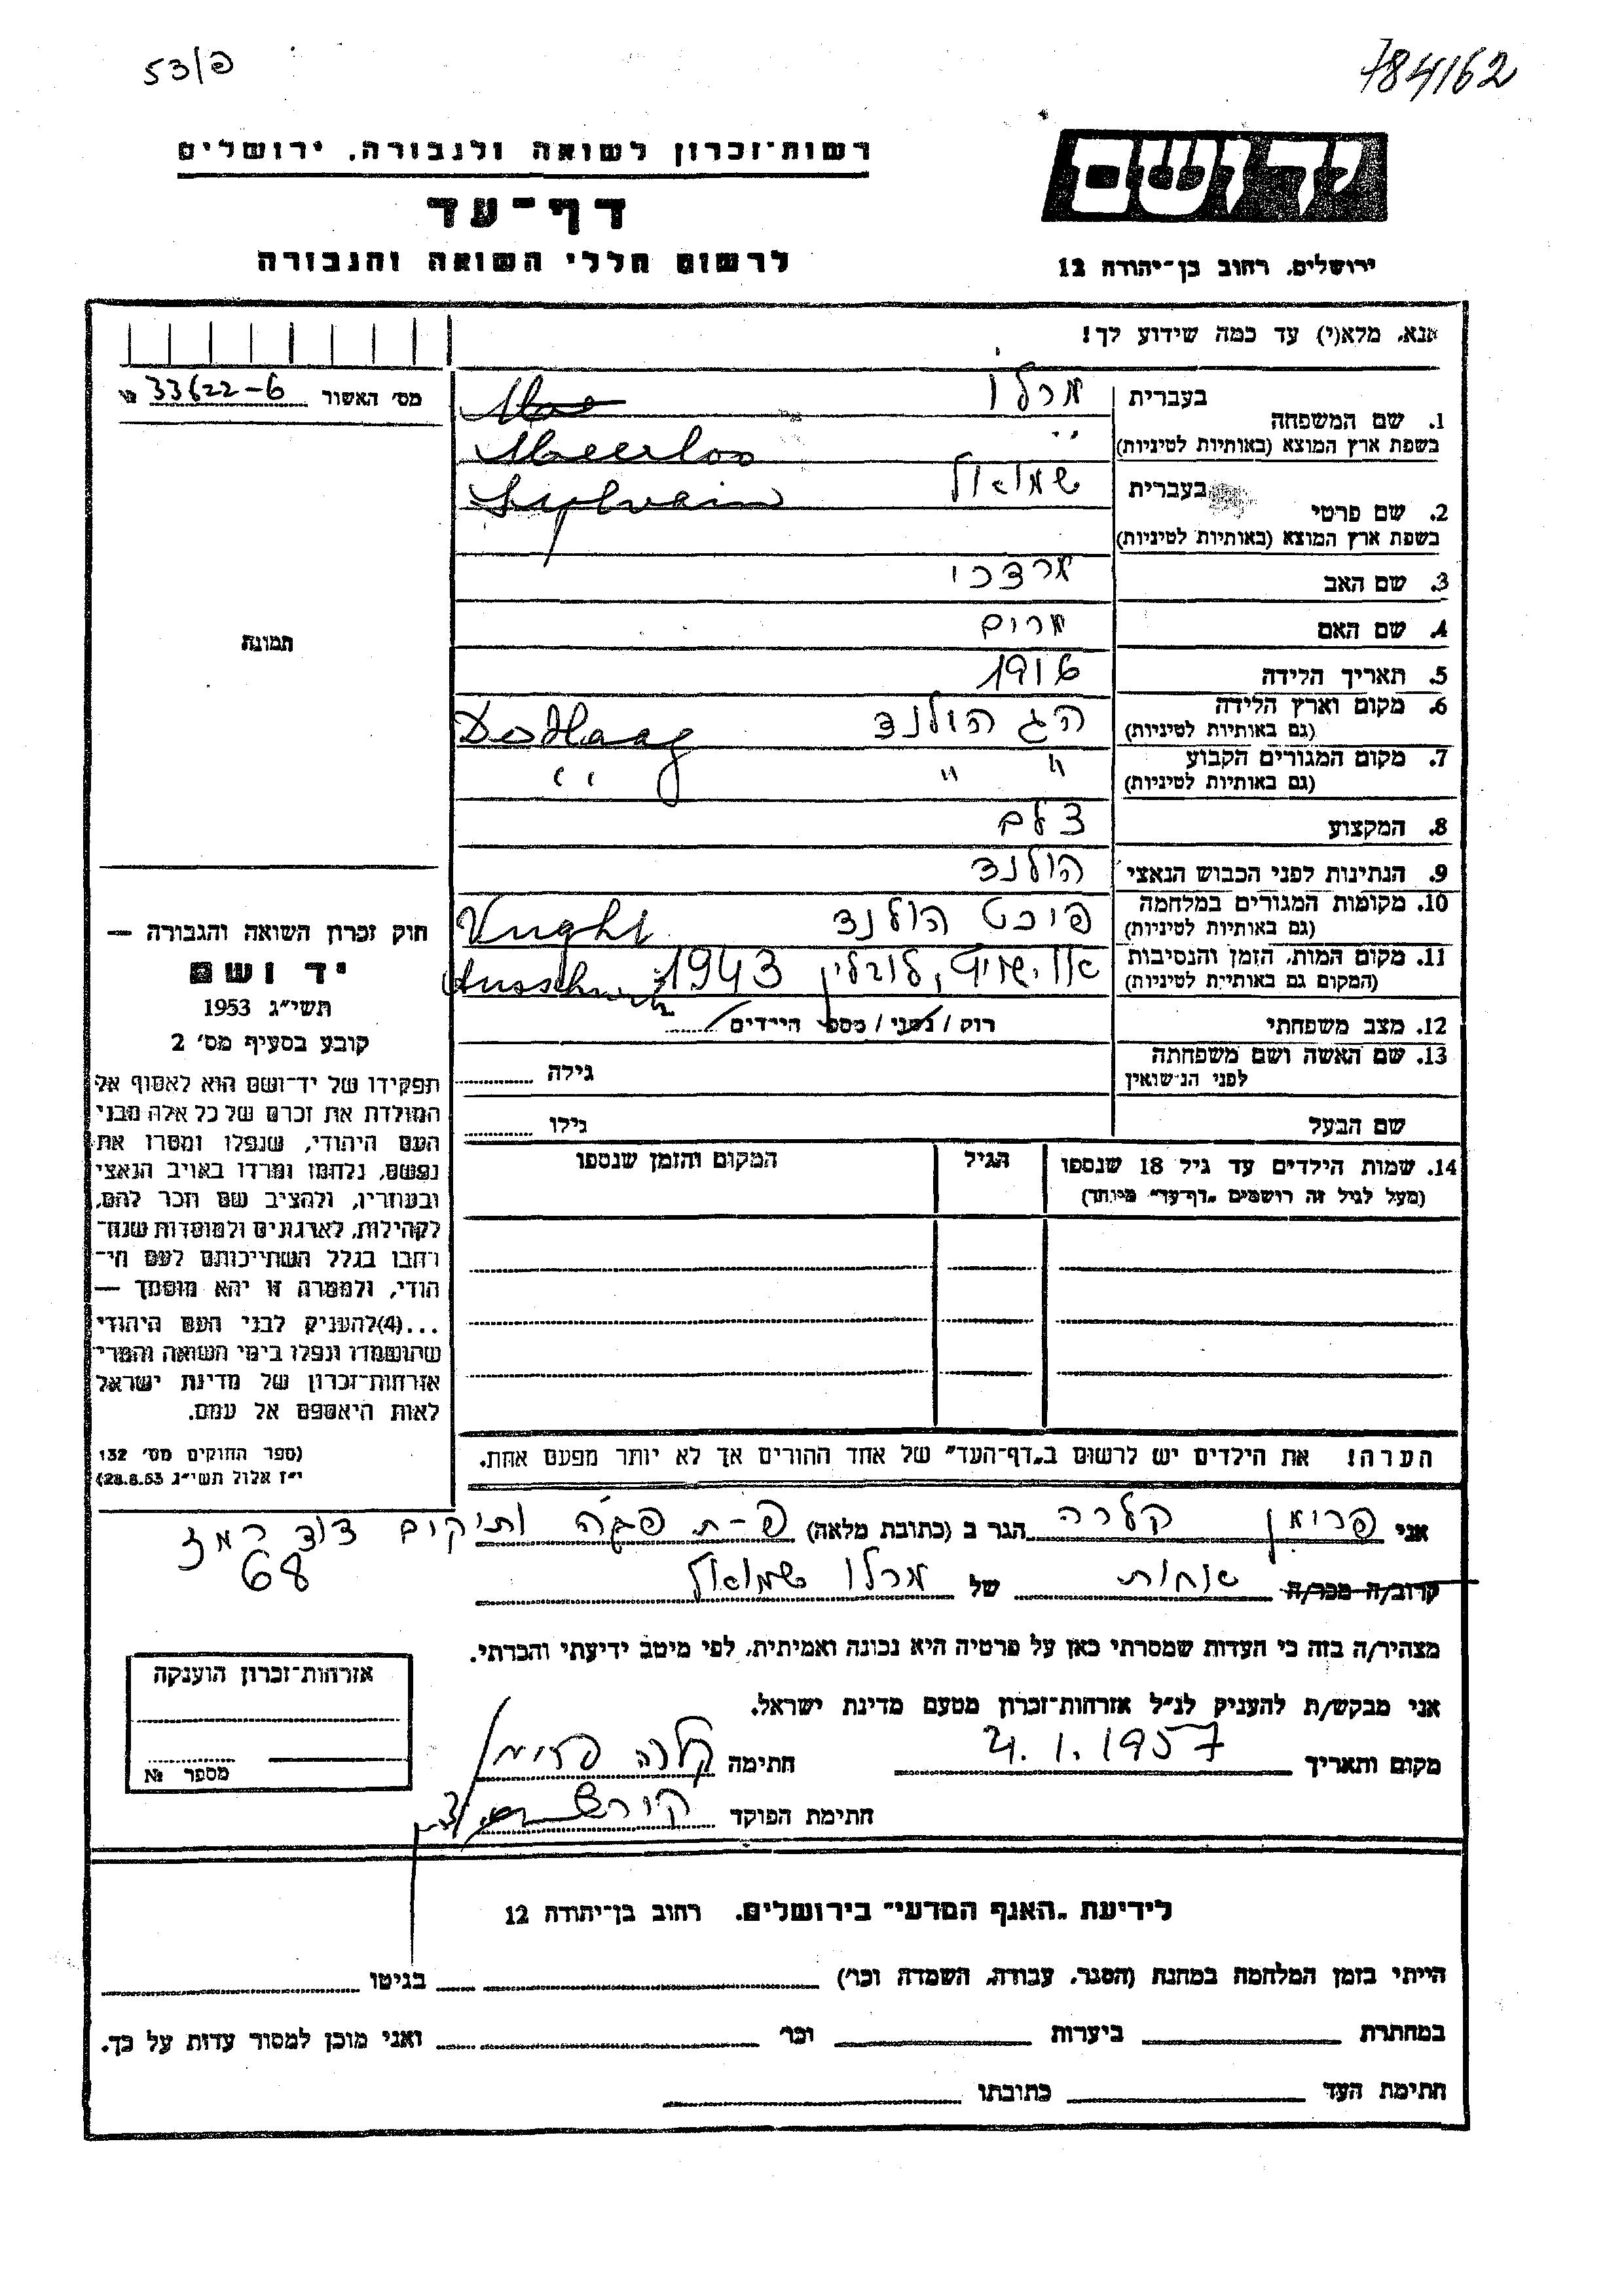 53/פ
784/62
יד ושם
ירושלים, רחוב בן־יהודה 12
רשות־זכרון לשואה ולגבורה, ירושלים
דף־עד
לרשום חללי השואה והגבורה
אנא, מלא(י) עד כמה שידוע לך!
מס׳ האשור 33622-6 №
תמונה
חוק זכרון השואה והגבורה —
יד ושם
תשי״ג 1953
קובע בסעיף מס׳ 2
תפקידו של יד־ושם הוא לאסוף אל
המולדת את זכרם של כל אלה מבני
העם היהודי, שנפלו ומסרו את
נפשם, נלחמו ומרדו באויב הנאצי
ובעוזריו, ולהציב שם וזכר להם,
לקהילות, לארגונים ולמוסדות שנח־
רבו בגלל השתייכותם לעם הי־
הודי, ולמטרה זו יהא מוסמך —
...(4)להעניק לבני העם היהודי
שהושמדו ונפלו בימי השואה והמרי
אזרחות־זכרון של מדינת ישראל
לאות היאספם אל עמם.
(ספר החוקים מס׳ 132
י״ז אלול תשי״ג 28.8.53)
1. שם המשפחה בעברית מרלו
בשפת ארץ המוצא (באותיות לטיניות) Meerloo
2. שם פרטי בעברית שמואל Sylvain
בשפת ארץ המוצא (באותיות לטיניות)
3. שם האב מרדכי
4. שם האם מרים
5. תאריך הלידה 1916
6. מקום וארץ הלידה הג הולנד Den Haag
(גם באותיות לטיניות)
7. מקום המגורים הקבוע " " "
(גם באותיות לטיניות)
8. המקצוע צלם
9. הנתינות לפני הכבוש הנאצי הולנד
10. מקומות המגורים במלחמה פיכט הולנד Vught
(גם באותיות לטיניות)
11. מקום המות, הזמן והנסיבות אושויץ, לובלין 1943 Ausschwitz
(המקום גם באותיות לטיניות)
12. מצב משפחתי רווק / נשוי / מספר הילדים
13. שם האשה ושם משפחתה גילה
לפני הנישואין
שם הבעל גילו
14. שמות הילדים עד גיל 18 שנספו הגיל המקום והזמן שנספו
(מעל לגיל זה רושמים „דף־עד״ מיוחד)
הערה! את הילדים יש לרשום ב„דף־העד״ של אחד ההורים אך לא יותר מפעם אחת.
אני פרימן קלרה הגר ב (כתובת מלאה) פ-ת פגה ותיקים דוד רמז
68
קרוב/ה מכר/ה אחות של מרלו שמואל
מצהיר/ה בזה כי העדות שמסרתי כאן על פרטיה היא נכונה ואמיתית, לפי מיטב ידיעתי והכרתי.
אני מבקש/ת להעניק לנ״ל אזרחות־זכרון מטעם מדינת ישראל.
מקום ותאריך 4.1.1957 חתימה קלרה פרימן
חתימת הפוקד
אזרחות־זכרון הוענקה
מספר №
לידיעת „האגף המדעי״ בירושלים, רחוב בן־יהודה 12
הייתי בזמן המלחמה במחנה (הסגר, עבודה, השמדה וכו׳) בגיטו
במחתרת ביערות וכו׳ ואני מוכן למסור עדות על כך.
חתימת העד כתובתו